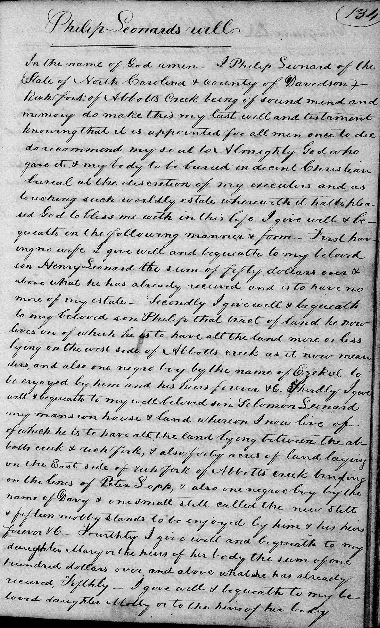 (134
Philip Leonards will
In the name of God amen I Philip Leonard of the
State of North Carolina & County of Davidson &
Rich fork of Abbotts Creek being of sound mind and
memory do make this my last will and testament
knowing that it is appointed for all men once to die
do recommend my soul to Almighty God who
gave it & my body to be buried in decent Christian
burial at the discretion of my executors and as
touching such worldly estate wherewith it hath plea-
sed God to bless me with in this life I give will & be-
queath on the following manner & form First hav-
ing no wife I give will and bequeath to my beloved
son Henry Leonard the sum of fifty dollars over &
above what he has already received and is to have no
more of my estate Secondly I give will & bequeath
to my beloved son Philip that tract of land he now
lives on of which he is to have all the land more or less
lying on the west side of Abbotts creek as it now mean-
ders and also one negro boy by the name of Ezekiel to
be enjoyed by him and his heirs forever &c Thirdly I give
will & bequeath to my well beloved son Solomon Leonard
my mansion house & land whereon I now live of
of which he is to have all the land lying between the ab-
botts creek & rich fork, & also forty acres of land laying
on the East side of rich fork of Abbotts Creek binding
on the lines of Peter Sapp, & also one negro boy by the
name of Davy & one small still called the new still
& fifteen stands to be enjoyed by him & his heirs
forever &c Fourthly I give will and bequeath to my
daughter Mary or the heirs of her body the sum of one
hundred dollars over and above what she has already
received Fifthly I give will & bequeath to my be-
loved daughter Molly or to the heirs of her body